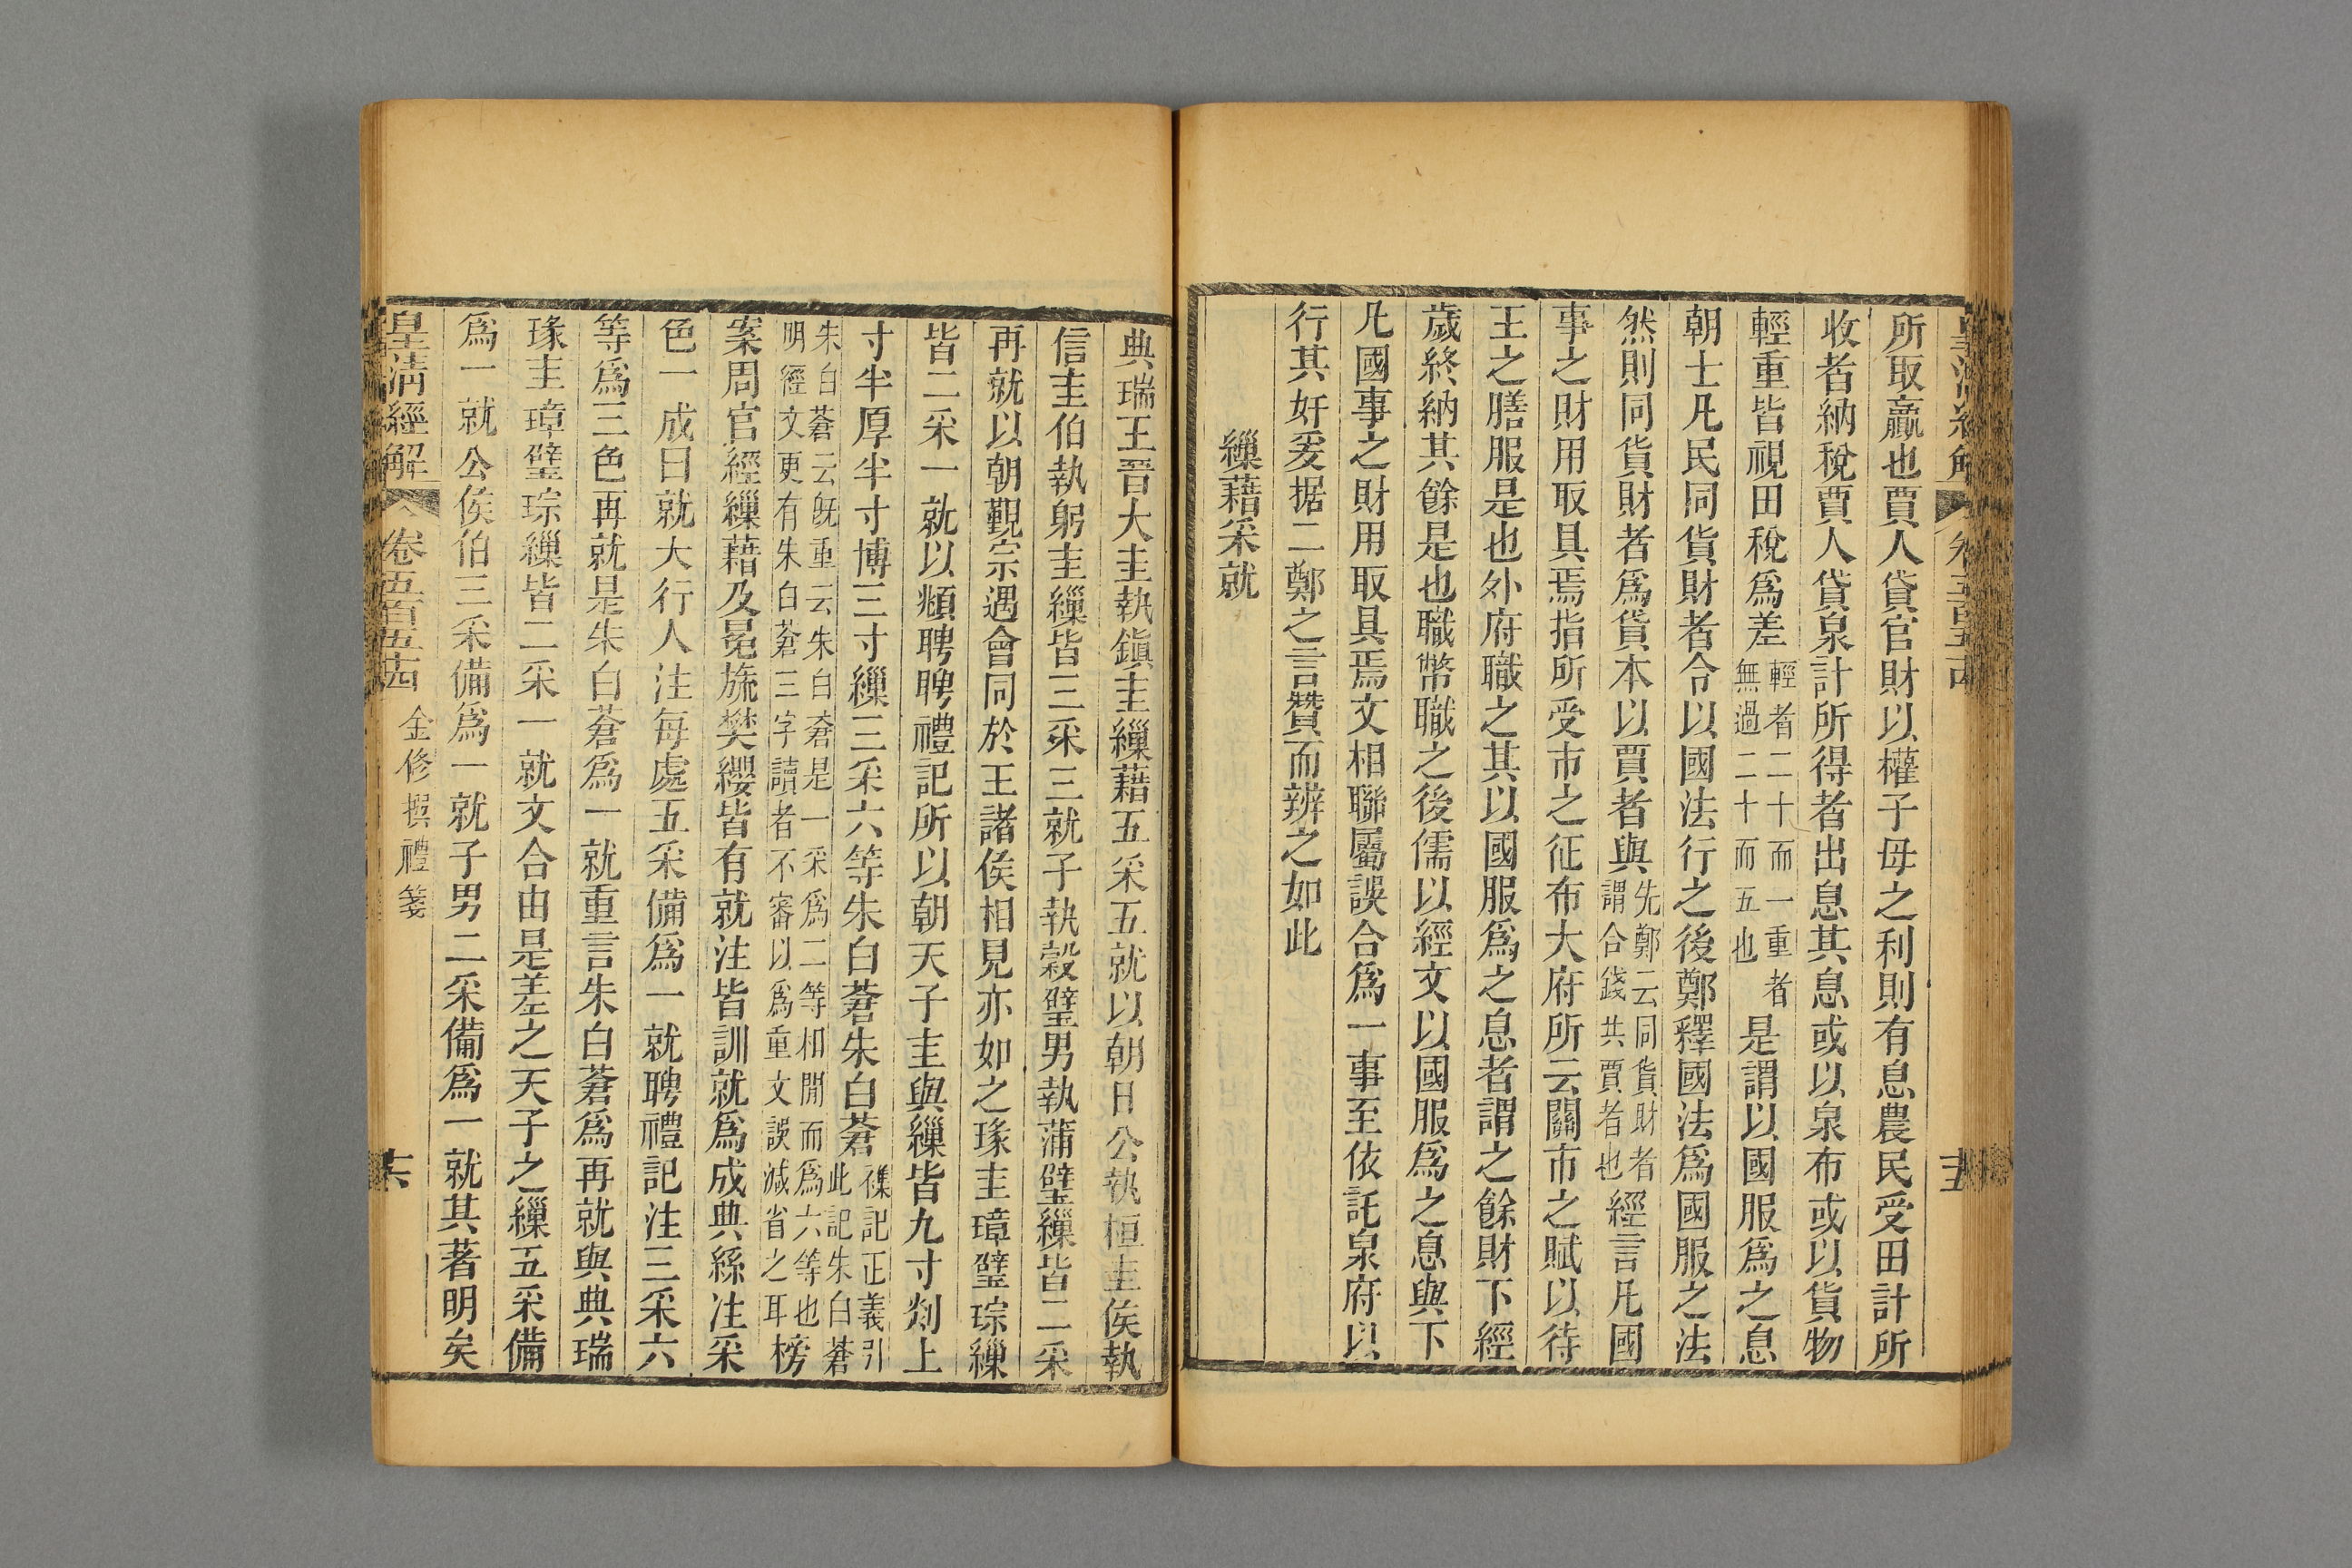 所取贏也賈人貸官財以權子母之利則有息農民受田計所
收者納稅賈人貸泉計所得者出息其息或以泉布或以貨物
輕重皆視田稅爲差輕者二十而一重者無過二十而五也是謂以國服爲之息
朝士凡民同貨財者令以國法行之後鄭釋國法爲國服之法
然則同貨財者爲貨本以賈者與先鄭云同貨財者謂合錢共賈者也經言凡國
事之財用取具焉指所受市之征布大府所云關市之賦以待
王之膳服是也外府職之其以國服爲之息者謂之餘財下經
歲終納其餘是也職幣職之後儒以經文以國服爲之息與下
凡國事之財用取具焉文相聯屬誤合爲一事至依託泉府以
行其奸爰据二鄭之言贊而辨之如此
繅藉采就
典瑞王晉大圭執鎮圭繅藉五采五就以朝日公執桓圭侯執
信圭伯執躬圭繅皆三采三就子執穀璧男執蒲璧繅皆二采
再就以朝覲宗遇會同於王諸侯相見亦如之瑑圭璋璧琮繅
皆二采一就以頫聘聘禮記所以朝天子圭與繅皆九寸剡上
寸半厚半寸博三寸繅三采六等朱白蒼朱白蒼襍記正義引此記朱白蒼
朱白蒼云旣重云朱白蒼是一采爲二等相閒而爲六等也明經文更有朱白蒼三字讀者不審以爲重文誤減省之耳榜
案周官經繅藉及冕旒樊纓皆有就注皆訓就爲成典絲注采
色一成曰就大行人注每處五采備爲一就聘禮記注三采六
等爲三色再就是朱白蒼爲一就重言朱白蒼爲再就與典瑞
瑑圭璋璧琮繅皆二采一就文合由是差之天子之繅五采備
爲一就公侯伯三采備爲一就子男二采備爲一就其著明矣
皇清經解 卷五百五十四 金修撰禮箋 十六